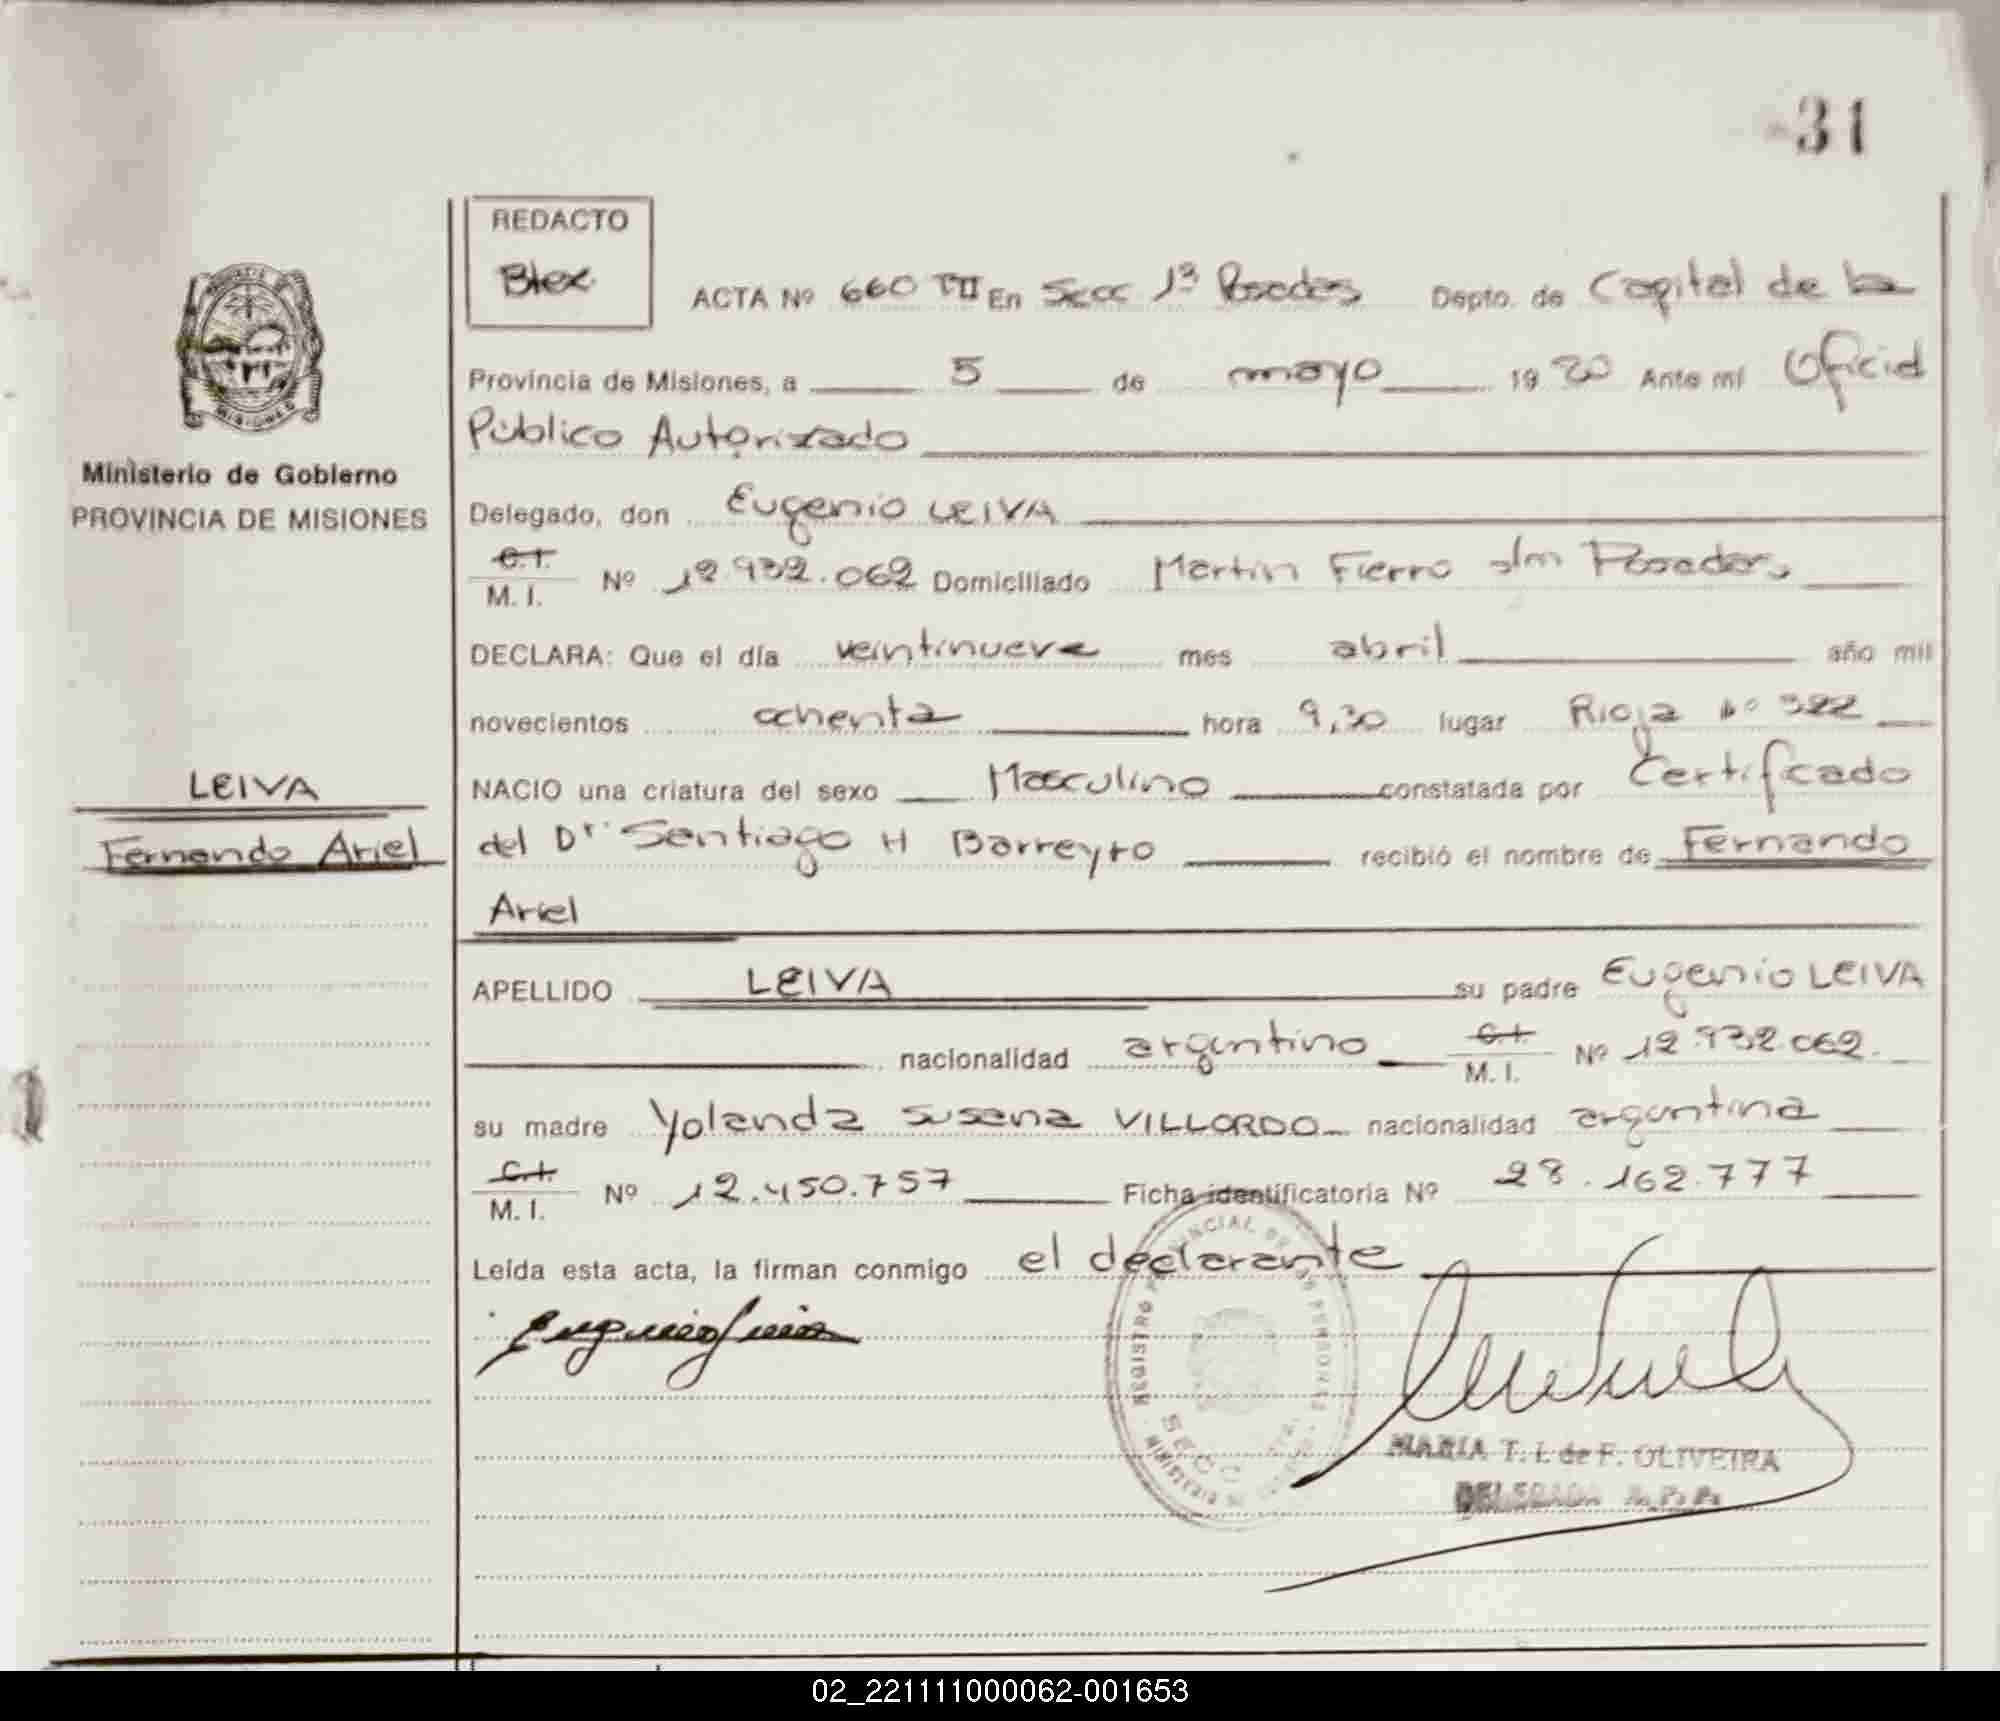 31
REDACTO
Btex
ACTA Nº 660 TII En Secc 1ª Posadas Depto. de Capital de la
Provincia de Misiones, a 5 de mayo 19 80 Ante mí Oficial
Público Autorizado
Ministerio de Gobierno
PROVINCIA DE MISIONES
Delegado, don Eugenio LEIVA
C.I.
M. I. Nº 12.932.062 Domiciliado Martin Fierro s/n Posadas
DECLARA: Que el día veintinueve mes abril año mil
novecientos ochenta hora 9,30 lugar Rioja Nº 322
LEIVA
Fernando Ariel
NACIO una criatura del sexo Masculino constatada por Certificado
del Dr. Santiago H Barreyro recibió el nombre de Fernando
Ariel
APELLIDO LEIVA su padre Eugenio LEIVA
nacionalidad argentino C.I. M. I. Nº 12.932.062.
su madre Yolanda Susana VILLORDO nacionalidad argentina
C.I.
M. I. Nº 12.450.757 Ficha identificatoria Nº 28.162.777
Leída esta acta, la firman conmigo el declarante
Eugenio Leiva
REGISTRO PROVINCIAL DE LAS PERSONAS
SECC
MINISTERIO DE
MARIA T. I. de F. OLIVEIRA
DELEGADA R.P.P.
02_221111000062-001653